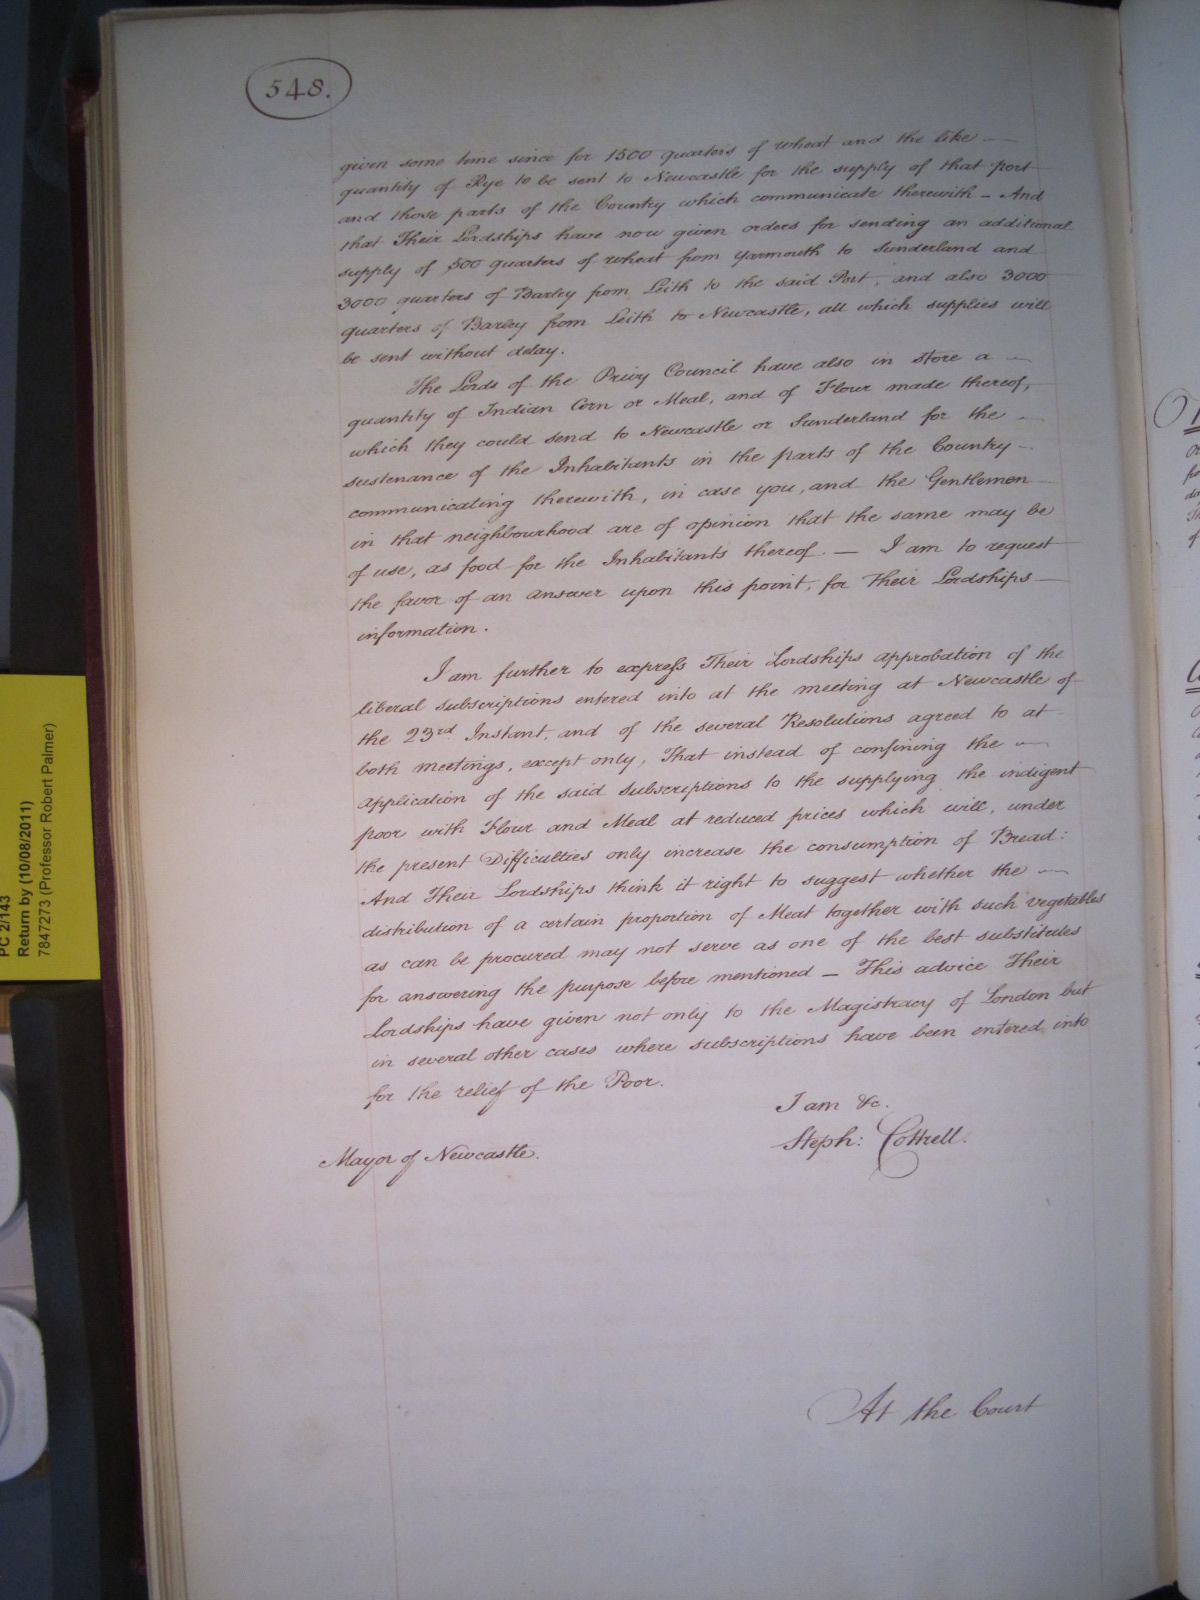 548.
given some time since for 1500 quarters of wheat and the like —
quantity of Rye to be sent to Newcastle for the supply of that port
and those parts of the Country which communicate therewith – And
that Their Lordships have now given orders for sending an additional
supply of 500 quarters of wheat from Yarmouth to Sunderland and
3000 quarters of Barley from Leith to the said Port, and also 3000
quarters of Barley from Leith to Newcastle, all which supplies will
be sent without delay.
The Lords of the Privy Council have also in store a —
quantity of Indian Corn or Meal, and of Flour made thereof,
which they could send to Newcastle or Sunderland for the —
sustenance of the Inhabitants in the parts of the Country —
communicating therewith, in case you, and the Gentlemen
in that neighbourhood are of opinion that the same may be
of use, as food for the Inhabitants thereof. — I am to request
the favor of an answer upon this point, for Their Lordships —
information.
I am further to express Their Lordships approbation of the
liberal subscriptions entered into at the meeting at Newcastle of
the 23rd Instant, and of the several Resolutions agreed to at
both meetings, except only, That instead of confining the —
application of the said subscriptions to the supplying the indigent
poor with Flour and Meal at reduced prices which will, under
the present Difficulties only increase the consumption of Bread:
And Their Lordships think it right to suggest whether the —
distribution of a certain proportion of Meat together with such vegetables
as can be procured may not serve as one of the best substitutes
for answering the purpose before mentioned — This advice Their
Lordships have given not only to the Magistracy of London but
in several other cases where subscriptions have been entered into
for the relief of the Poor.
I am &c.
Steph: Cottrell.
Mayor of Newcastle.
At the Court
PC 2/143
Return by (10/08/2011)
7847273 (Professor Robert Palmer)